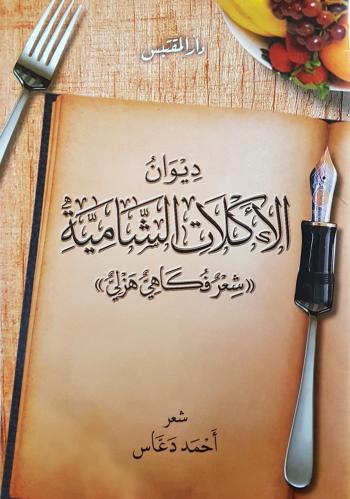 دار المقتبس
دِيْوَانُ
الأَكَلَاتِ الشَّامِيَّةِ
«شِعْرٌ فُكَاهِيٌّ هَزْلِيٌّ»
شعر
أَحْمَد دَعَّاس